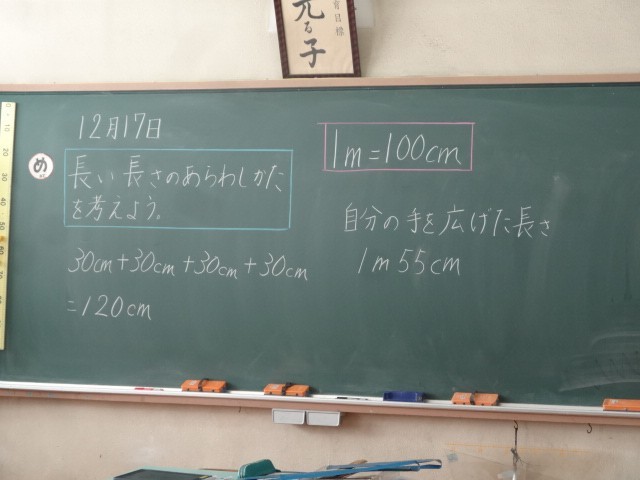 育目標
光る子
12月17日
め
長い長さのあらわしかた
を考えよう。
30cm+30cm+30cm+30cm
=120cm
1m=100cm
自分の手を広げた長さ
1m55cm
0
10
20
30
40
50
60
70